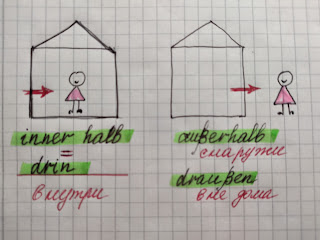 inner halb
=
drin
внутри
außerhalb
снаружи
draußen
вне дома